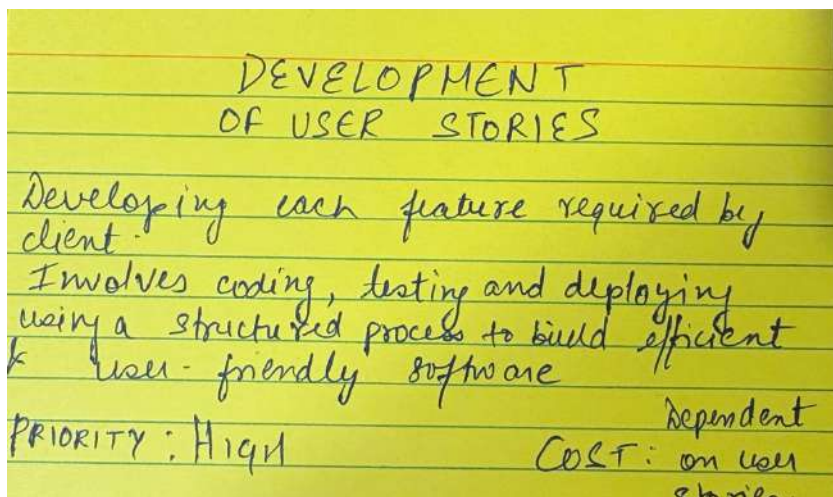 DEVELOPMENT
OF USER STORIES
Developing each feature required by
client.
Involves coding, testing and deploying
using a structured process to build efficient
& user-friendly software
PRIORITY : HIGH
COST : Dependent
on user
stories